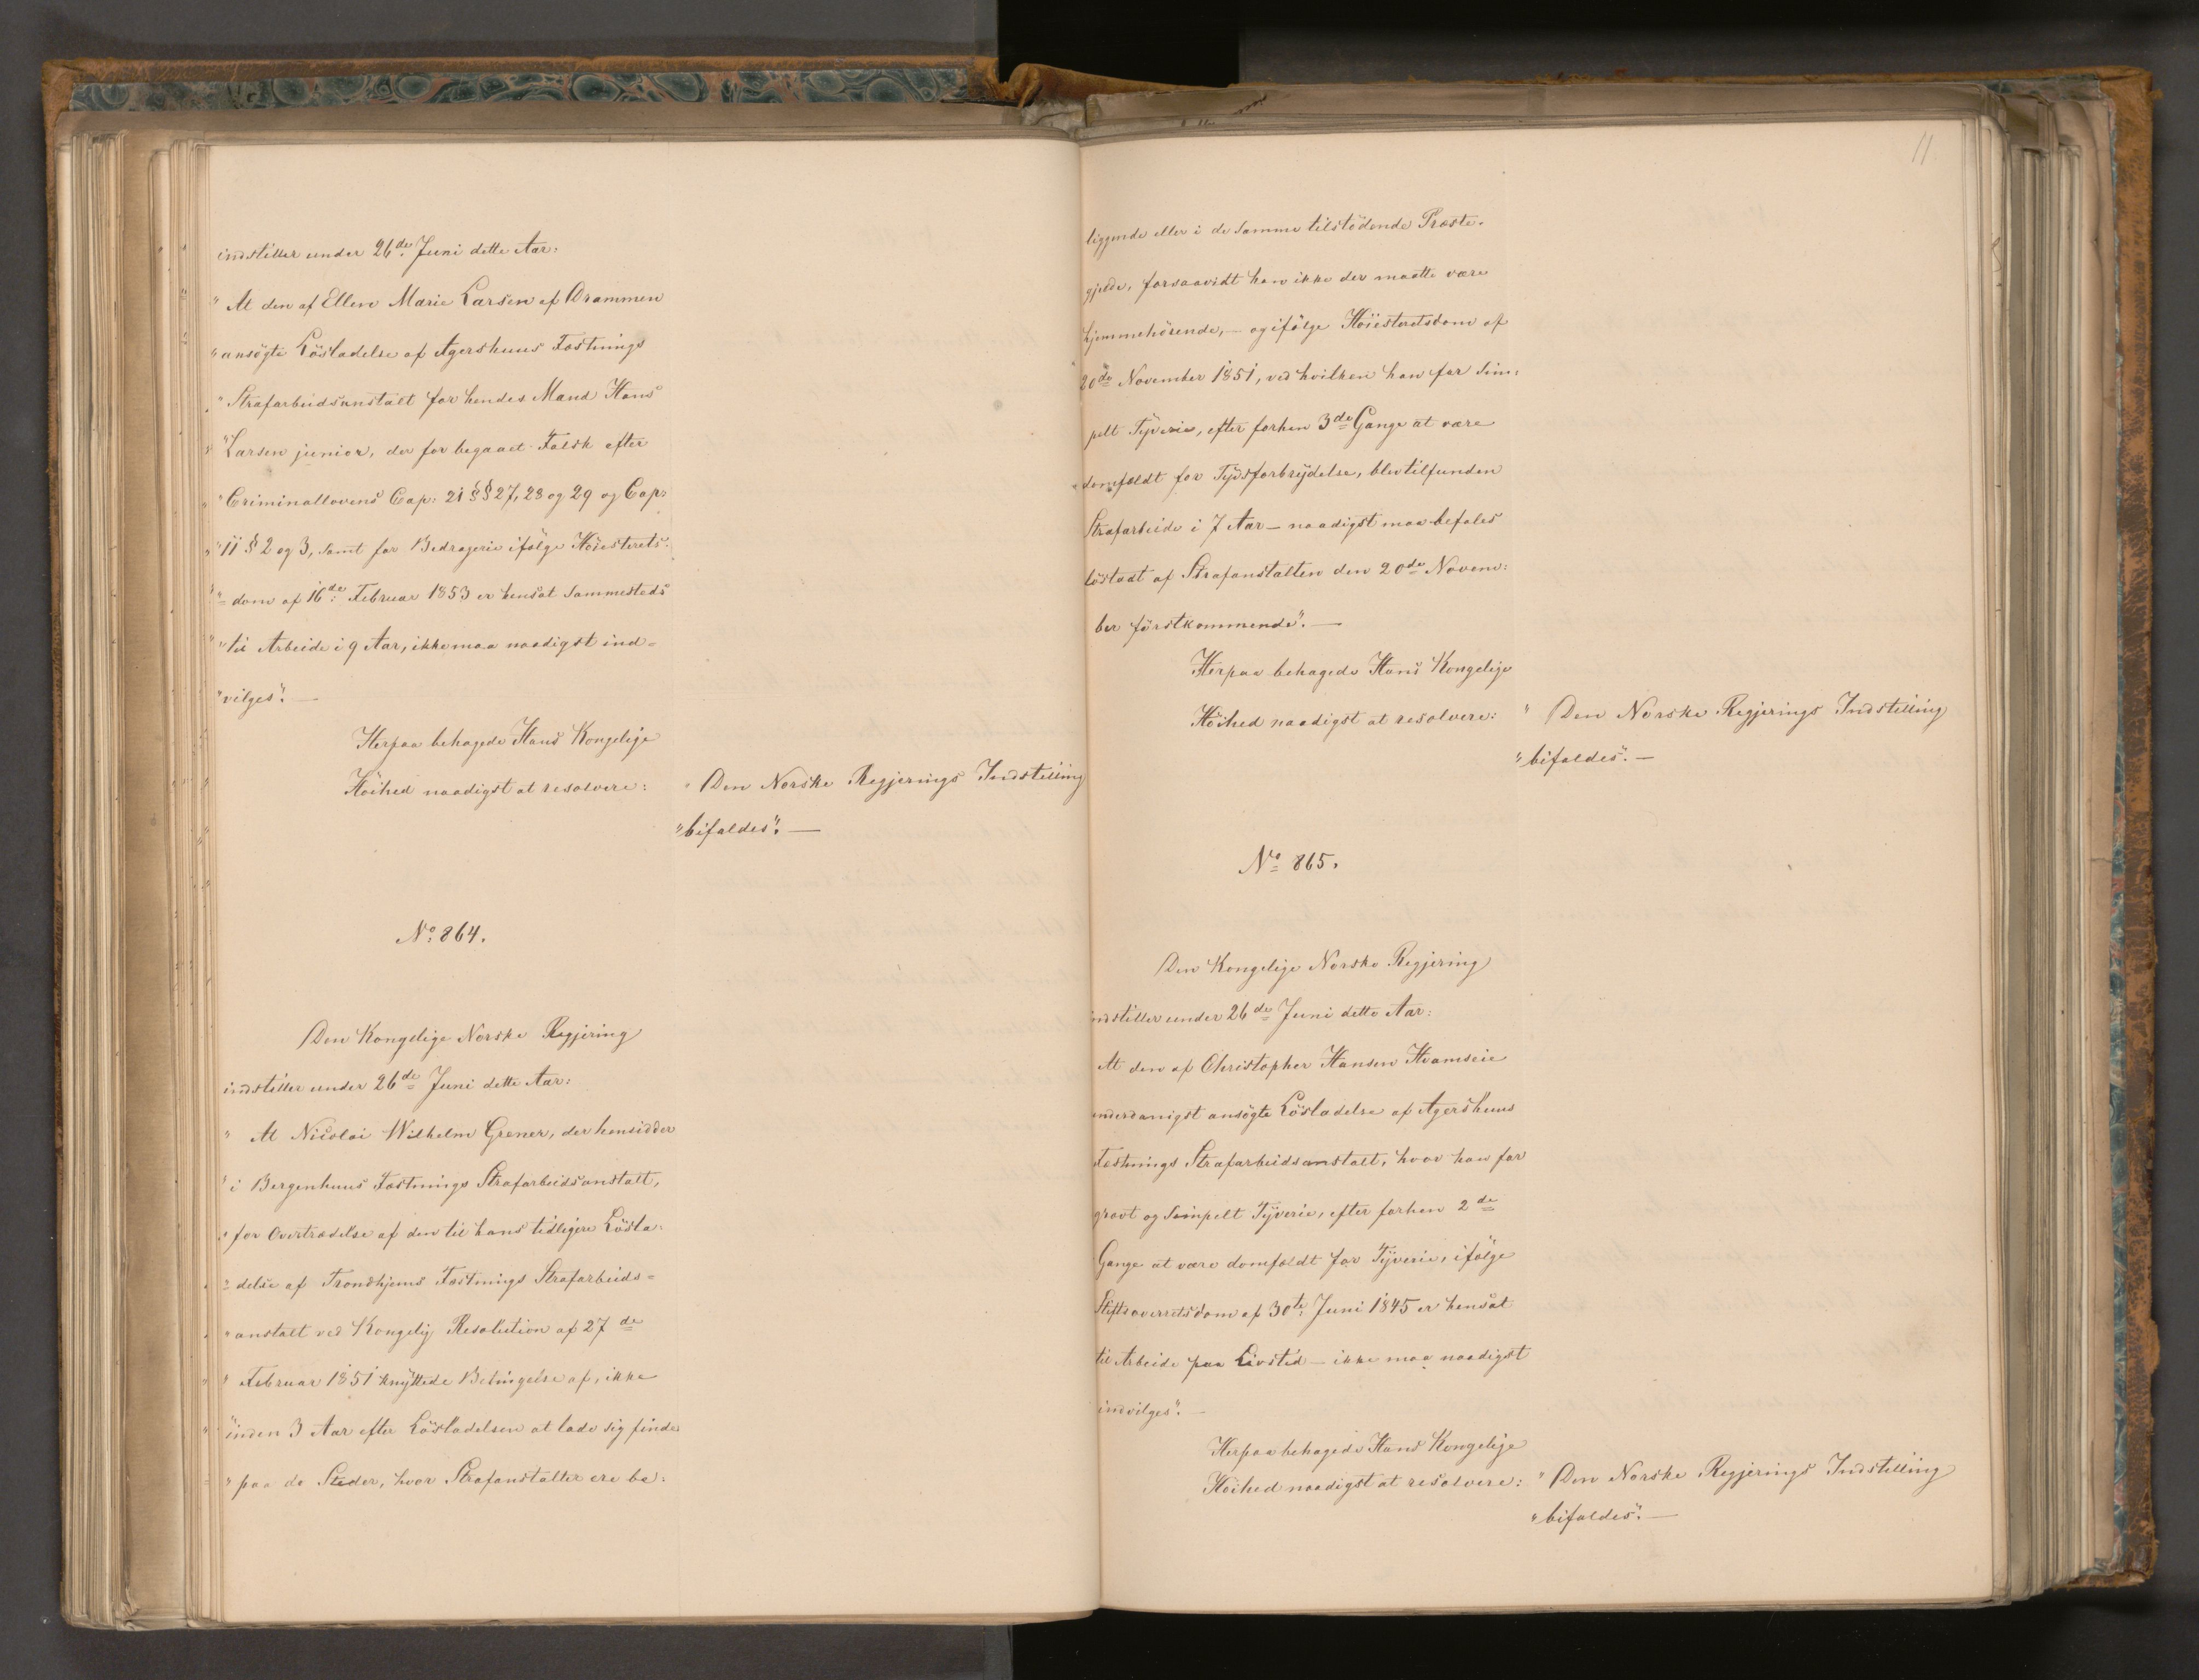 indstiller under 26de Juni dette Aar:
"At den af Ellen Marie Larsen af Drammen
"ansögte Lösladelse af Agershuus Fæstnings
"Strafarbeidsanstalt for hendes Mand Hans
"Larsen junior, der for begaaet Falsk efter
"Criminallovens Cap: 21 §§ 27, 28 og 29 og Cap:
"11 § 2 og 3, samt for Bedragerie ifølge Höiesterets:
"dom af 16de Februar 1853 er hensat sammesteds
"til Arbeide i 9 Aar, ikke maa naadigst ind=
"vilges". —
Herpaa behagede Hans Kongelige
Höihed naadigst at resolvere:
"Den Norske Regjerings Indstilling
"bifaldes". —
No: 864.
Den Kongelige Norske Regjering
indstiller under 26de Juni dette Aar:
"At Nicolai Wilhelm Grener, der hensidder
"i Bergenhuus Fæstnings Strafarbeidsanstalt,
"for Overtrædelse af den til hans tidligere Lösla:
"delse af Trondhjems Fæstnings Strafarbeids=
"anstalt ved Kongelig Resolution af 27de
"Februar 1851 knyttede Betingelse af, ikke
"inden 3 Aar efter Lösladelsen at lade sig finde
"paa de Steder, hvor Strafanstalter ere be:
11
liggende eller i de samme tilstödende Præste.
gjelde, forsaavidt han ikke der maatte være
hjemmehörende, — og ifölge Höiestretsdom af
20de November 1851, ved hvilken han for Sim:
pelt Tyverie, efter forhen 3de Gange at være
domfældt for Tyvsforbrydelse, blev tilfunden
Strafarbeide i 7 Aar — naadigst maa befales
lösladt af Strafanstalten den 20de Novem:
ber förstkommende". —
Herpaa behagede Hans Kongelige
Höihed naadigst at resolvere:
"Den Norske Regjerings Indstilling
"bifaldes". —
No 865.
Den Kongelige Norske Regjering
indstiller under 26de Juni dette Aar:
At den af Christopher Hansen Hvamseie
underdanigst ansögte Lösladelse af Agershuus
Fæstnings Strafarbeidsanstalt, hvor han for
grovt og Simpelt Tyverie, efter forhen 2de
Gange at være domfældt for Tyverie, ifølge
Stiftsoverretsdom af 30te Juni 1845 er hensat
til Arbeide paa Livstid — ikke maa naadigst
indvilges". —
Herpaa behagede Hans Kongelige
Höihed naadigst at resolvere:
"Den Norske Regjerings Indstilling
"bifaldes". —